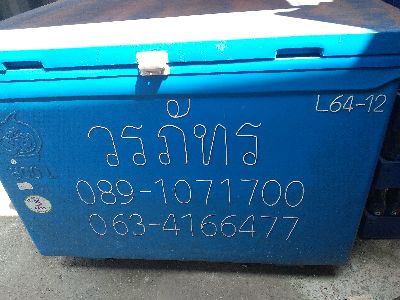 L64-12
วรภัทร
089-1071700
063-4166477